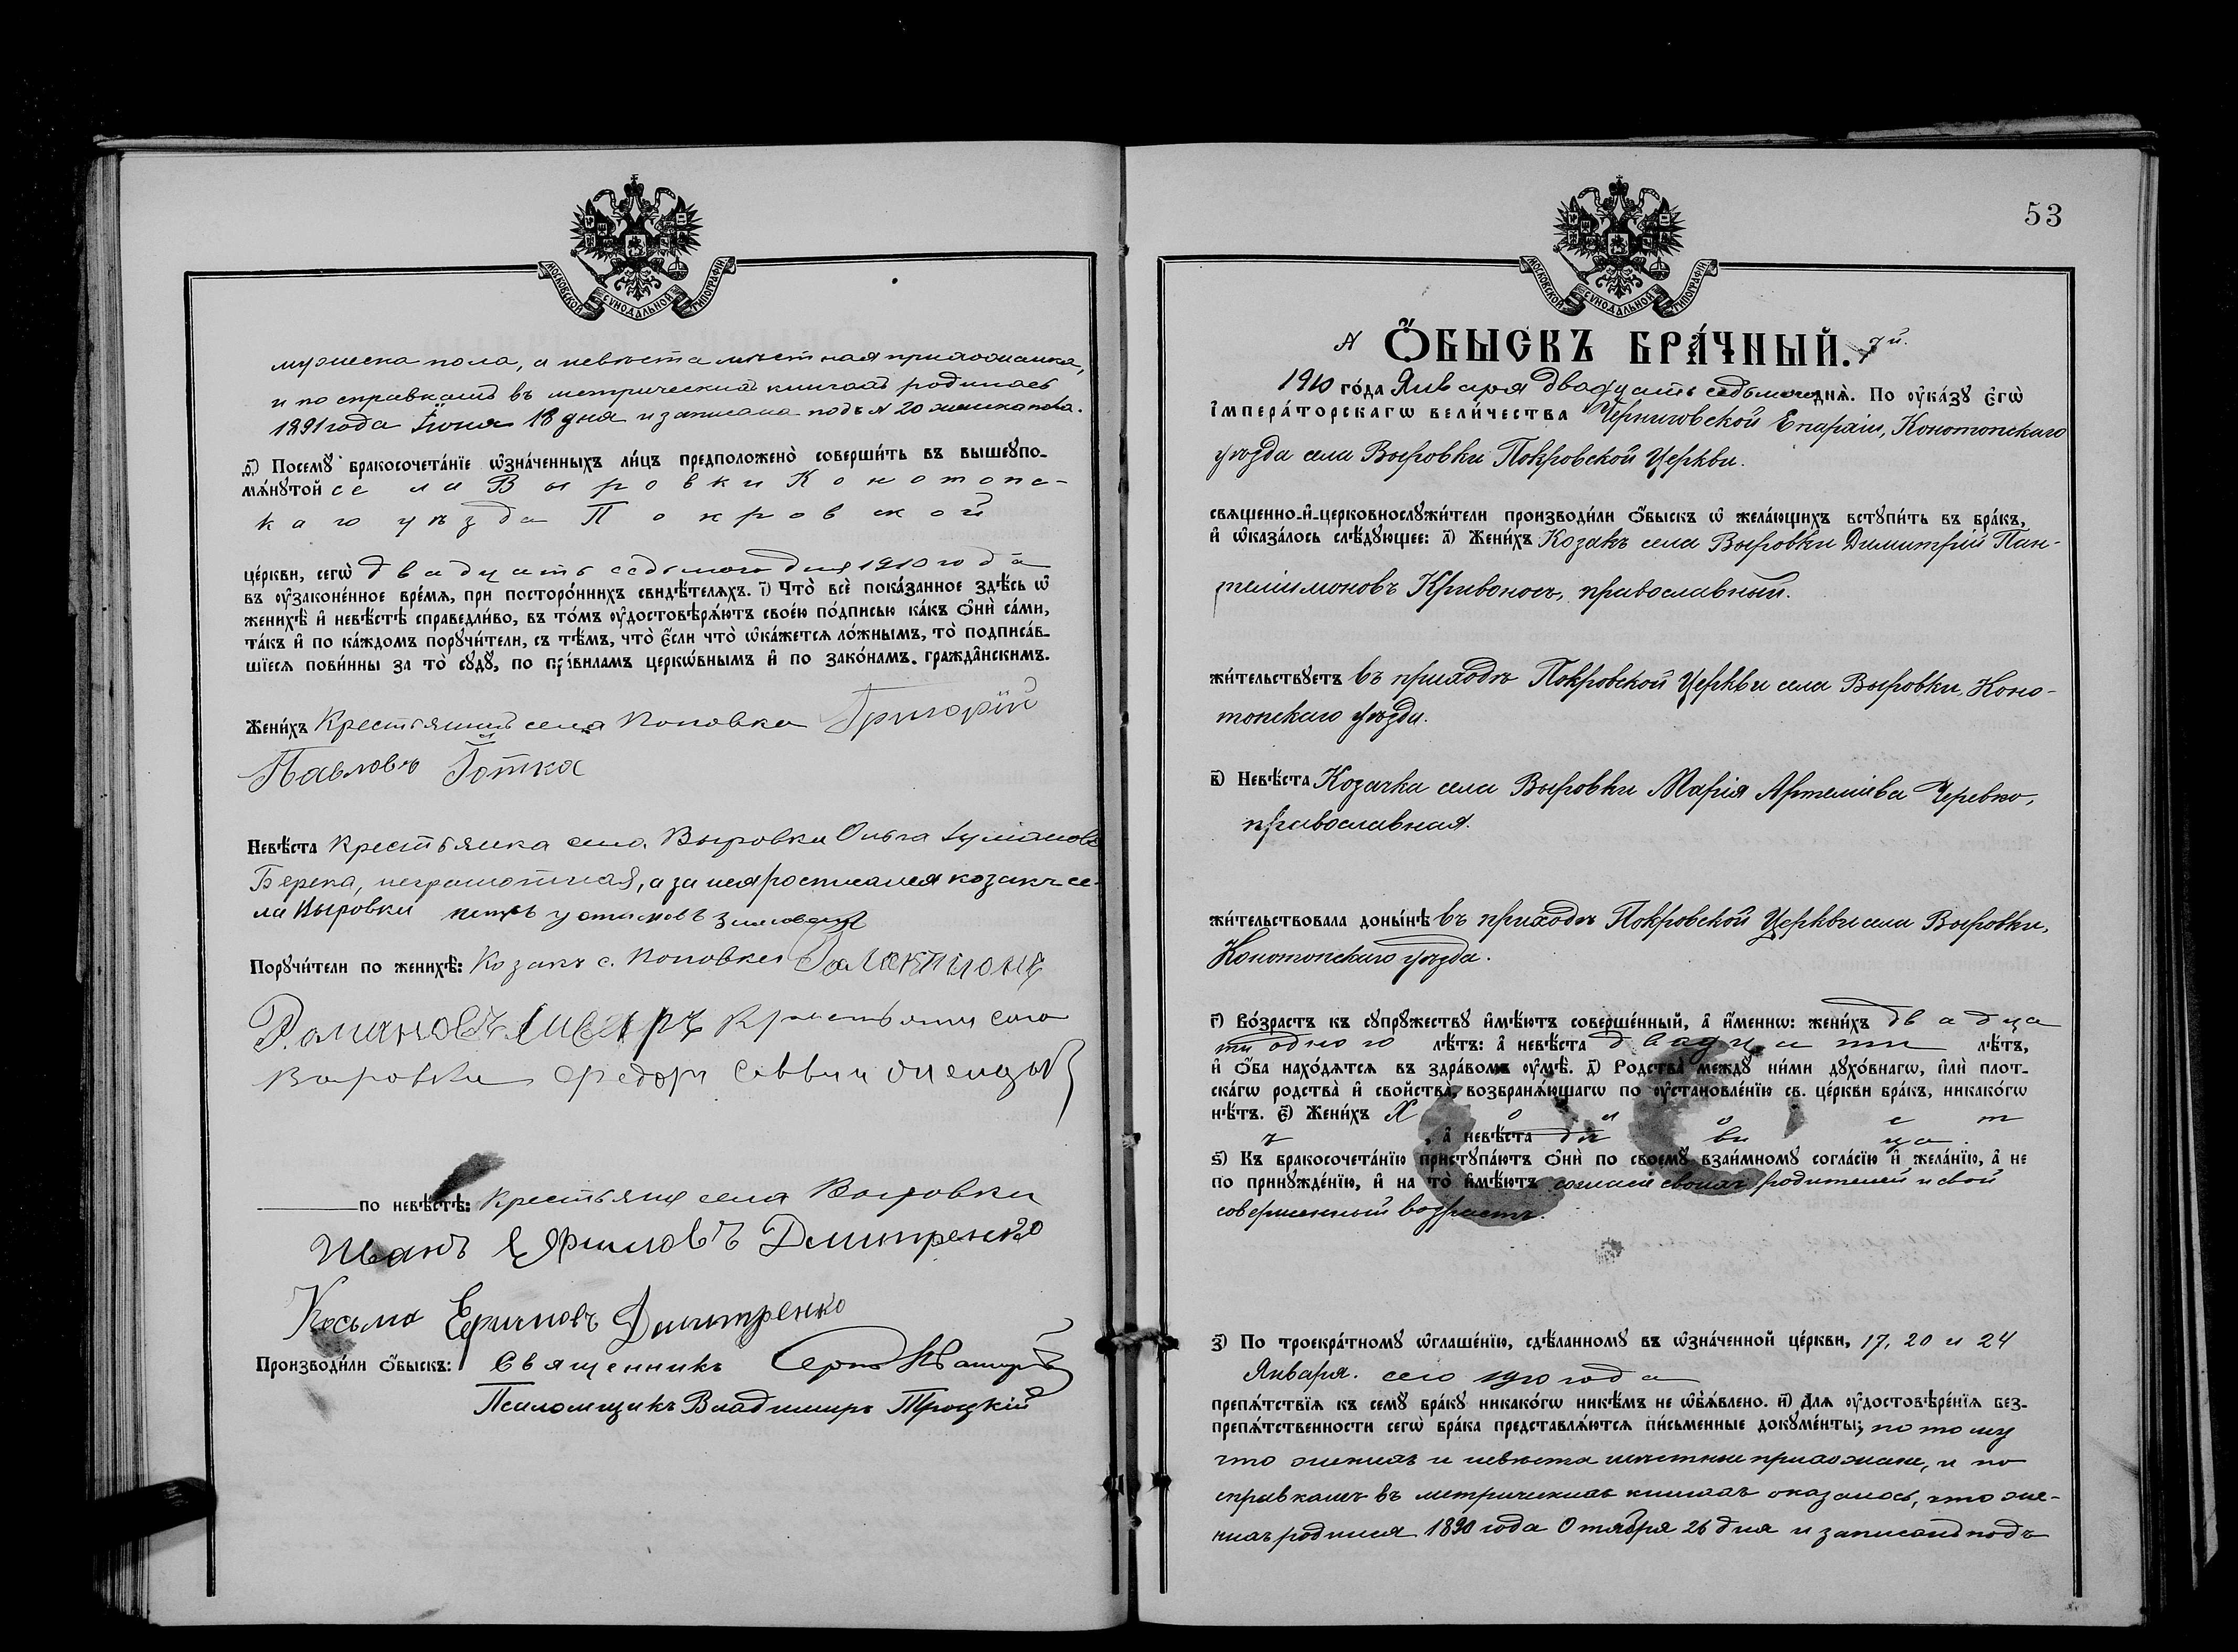 МОСКОВСКОЙ СѴНОДАЛЬНОЙ ТИПОГРАФІИ
мужеска пола, а невѣста мѣстная прихожанка,
и по справкамъ въ метрическихъ книгахъ родилась
1891 года Іюня 18 дня и записана подъ № 20 женска пола.
ѳ҃) Посемꙋ̀ бракосочета́нїе ѡ҆зна́ченныхъ ли́цъ предположено̀ соверши́ть въ вышеꙋпо-
мѧ́нꙋтой села Выровки Конотопс-
каго уѣзда Покровской
це́ркви, сегѡ̀ двадцать седьмого дня 1910 года
въ ᲂу҆законе́нное вре́мѧ, при посторо́ннихъ свидѣ́телѧхъ. і҃) Что̀ всѐ пока́занное здѣ́сь ѡ҆
женихѣ̀ и҆ невѣ́стѣ справедли́во, въ то́мъ ᲂу҆достовѣрѧ́ютъ свое́ю по́дписью ка́къ ѻ҆нѝ са́ми,
та́къ и҆ по ка́ждомъ порꙋчи́тели, съ тѣ́мъ, что̀ є҆́сли что̀ ѡ҆ка́жетсѧ ло́жнымъ, то̀ подписа́в-
шїесѧ пови́нны за то̀ сꙋдꙋ̀, по пра́виламъ церкѡ́внымъ и҆ по зако́намъ гражда̂нскимъ.
Жени́хъ Крестьянинъ села Поповка Григорій
Павловъ Готка
Невѣ́ста Крестьянка села Выровки Ольга
неграмотная, а за нея росписался козакъ се-
ла Выровки
Порꙋчи́тели по женихѣ̀: Козакъ с. Поповки
Романовъ
Выровки Федоръ Саввин
по невѣ́стѣ: Крестьяне села Выровки
Иванъ Ефимовъ Дмитренко
Косьма Ефимовъ Дмитренко
Производи́ли ѻ҆́быскъ: Священникъ
Псаломщикъ Владимиръ Троцкій
53
МОСКОВСКОЙ СѴНОДАЛЬНОЙ ТИПОГРАФІИ
№ Ѻ҆́БЫСКЪ БРА́ЧНЫЙ. 7й.
1910 го́да Января двадцать седьмого днѧ̀. По ᲂу҆ка́зꙋ є҆гѡ̀
і҆мпера́торскагѡ вели́чества Черниговской Епархіи, Конотопскаго
уѣзда села Выровки Покровской Церкви.
свѧщенно-и҆-церковнослꙋжи́тели производи́ли ѻ҆́быскъ ѡ҆ жела́ющихъ встꙋпи́ть въ бра́къ,
и҆ ѡ҆каза́лось слѣ́дꙋющее: а҃) Жени́хъ Козакъ села Выровки Димитрій Пан-
телимоновъ Кривоносъ, православный.
жи́тельствꙋетъ въ приходѣ Покровской Церкви села Выровки, Коно-
топскаго уѣзда.
в҃) Невѣ́ста Козачка села Выровки Марія Артеміева Черевко,
православная.
жи́тельствовала доны́нѣ въ приходѣ Покровской Церкви села Выровки,
Конотопскаго уѣзда.
г҃) Во́зрастъ къ сꙋпрꙋ́жествꙋ и҆мѣ́ютъ соверше́нный, а҆ и҆́меннѡ: жени́хъ двадца
ти одного лѣ́тъ: а҆ невѣ́ста двадцати лѣ́тъ,
и҆ ѻ҆́ба нахо́дѧтсѧ въ здра́вомъ ᲂу҆мѣ̀. д҃) Родства̀ междꙋ̀ ни́ми дꙋхо́внагѡ, и҆лѝ плот-
ска́гѡ родства̀ и҆ свойства̀, возбранѧ́ющагѡ по ᲂу҆становле́нїю св. це́ркви бра́къ, никако́гѡ
нѣ́тъ. є҃) Жени́хъ Холост
ъ, а҆ невѣ́ста дѣвица.
ѕ҃) Къ бракосочета́нїю пристꙋпа́ютъ ѻ҆нѝ по своемꙋ̀ взаи́мномꙋ согла́сїю и҆ жела́нїю, а҆ не
по принꙋжде́нїю, и҆ на то̀ и҆мѣ́ютъ согласіе своихъ родителей и свой
совершенный возрастъ.
з҃) По троекра́тномꙋ ѡ҆глаше́нїю, сдѣ́ланномꙋ въ ѡ҆зна́ченной це́ркви, 17, 20 и 24
Января. сего 1910 года
препѧ́тствїѧ къ семꙋ̀ бра́кꙋ никако́гѡ никѣ́мъ не ѡ҆б̾ѧ́влено. и҃) Длѧ ᲂу҆достовѣре́нїѧ без-
препѧ́тственности сегѡ̀ бра́ка представлѧ́ютсѧ пи́сьменные докꙋме́нты: потому
что женихъ и невѣста мѣстные прихожане, и по
справкамъ въ метрическихъ книгахъ оказалось, что же-
нихъ родился 1890 года Октября 26 дня и записанъ подъ